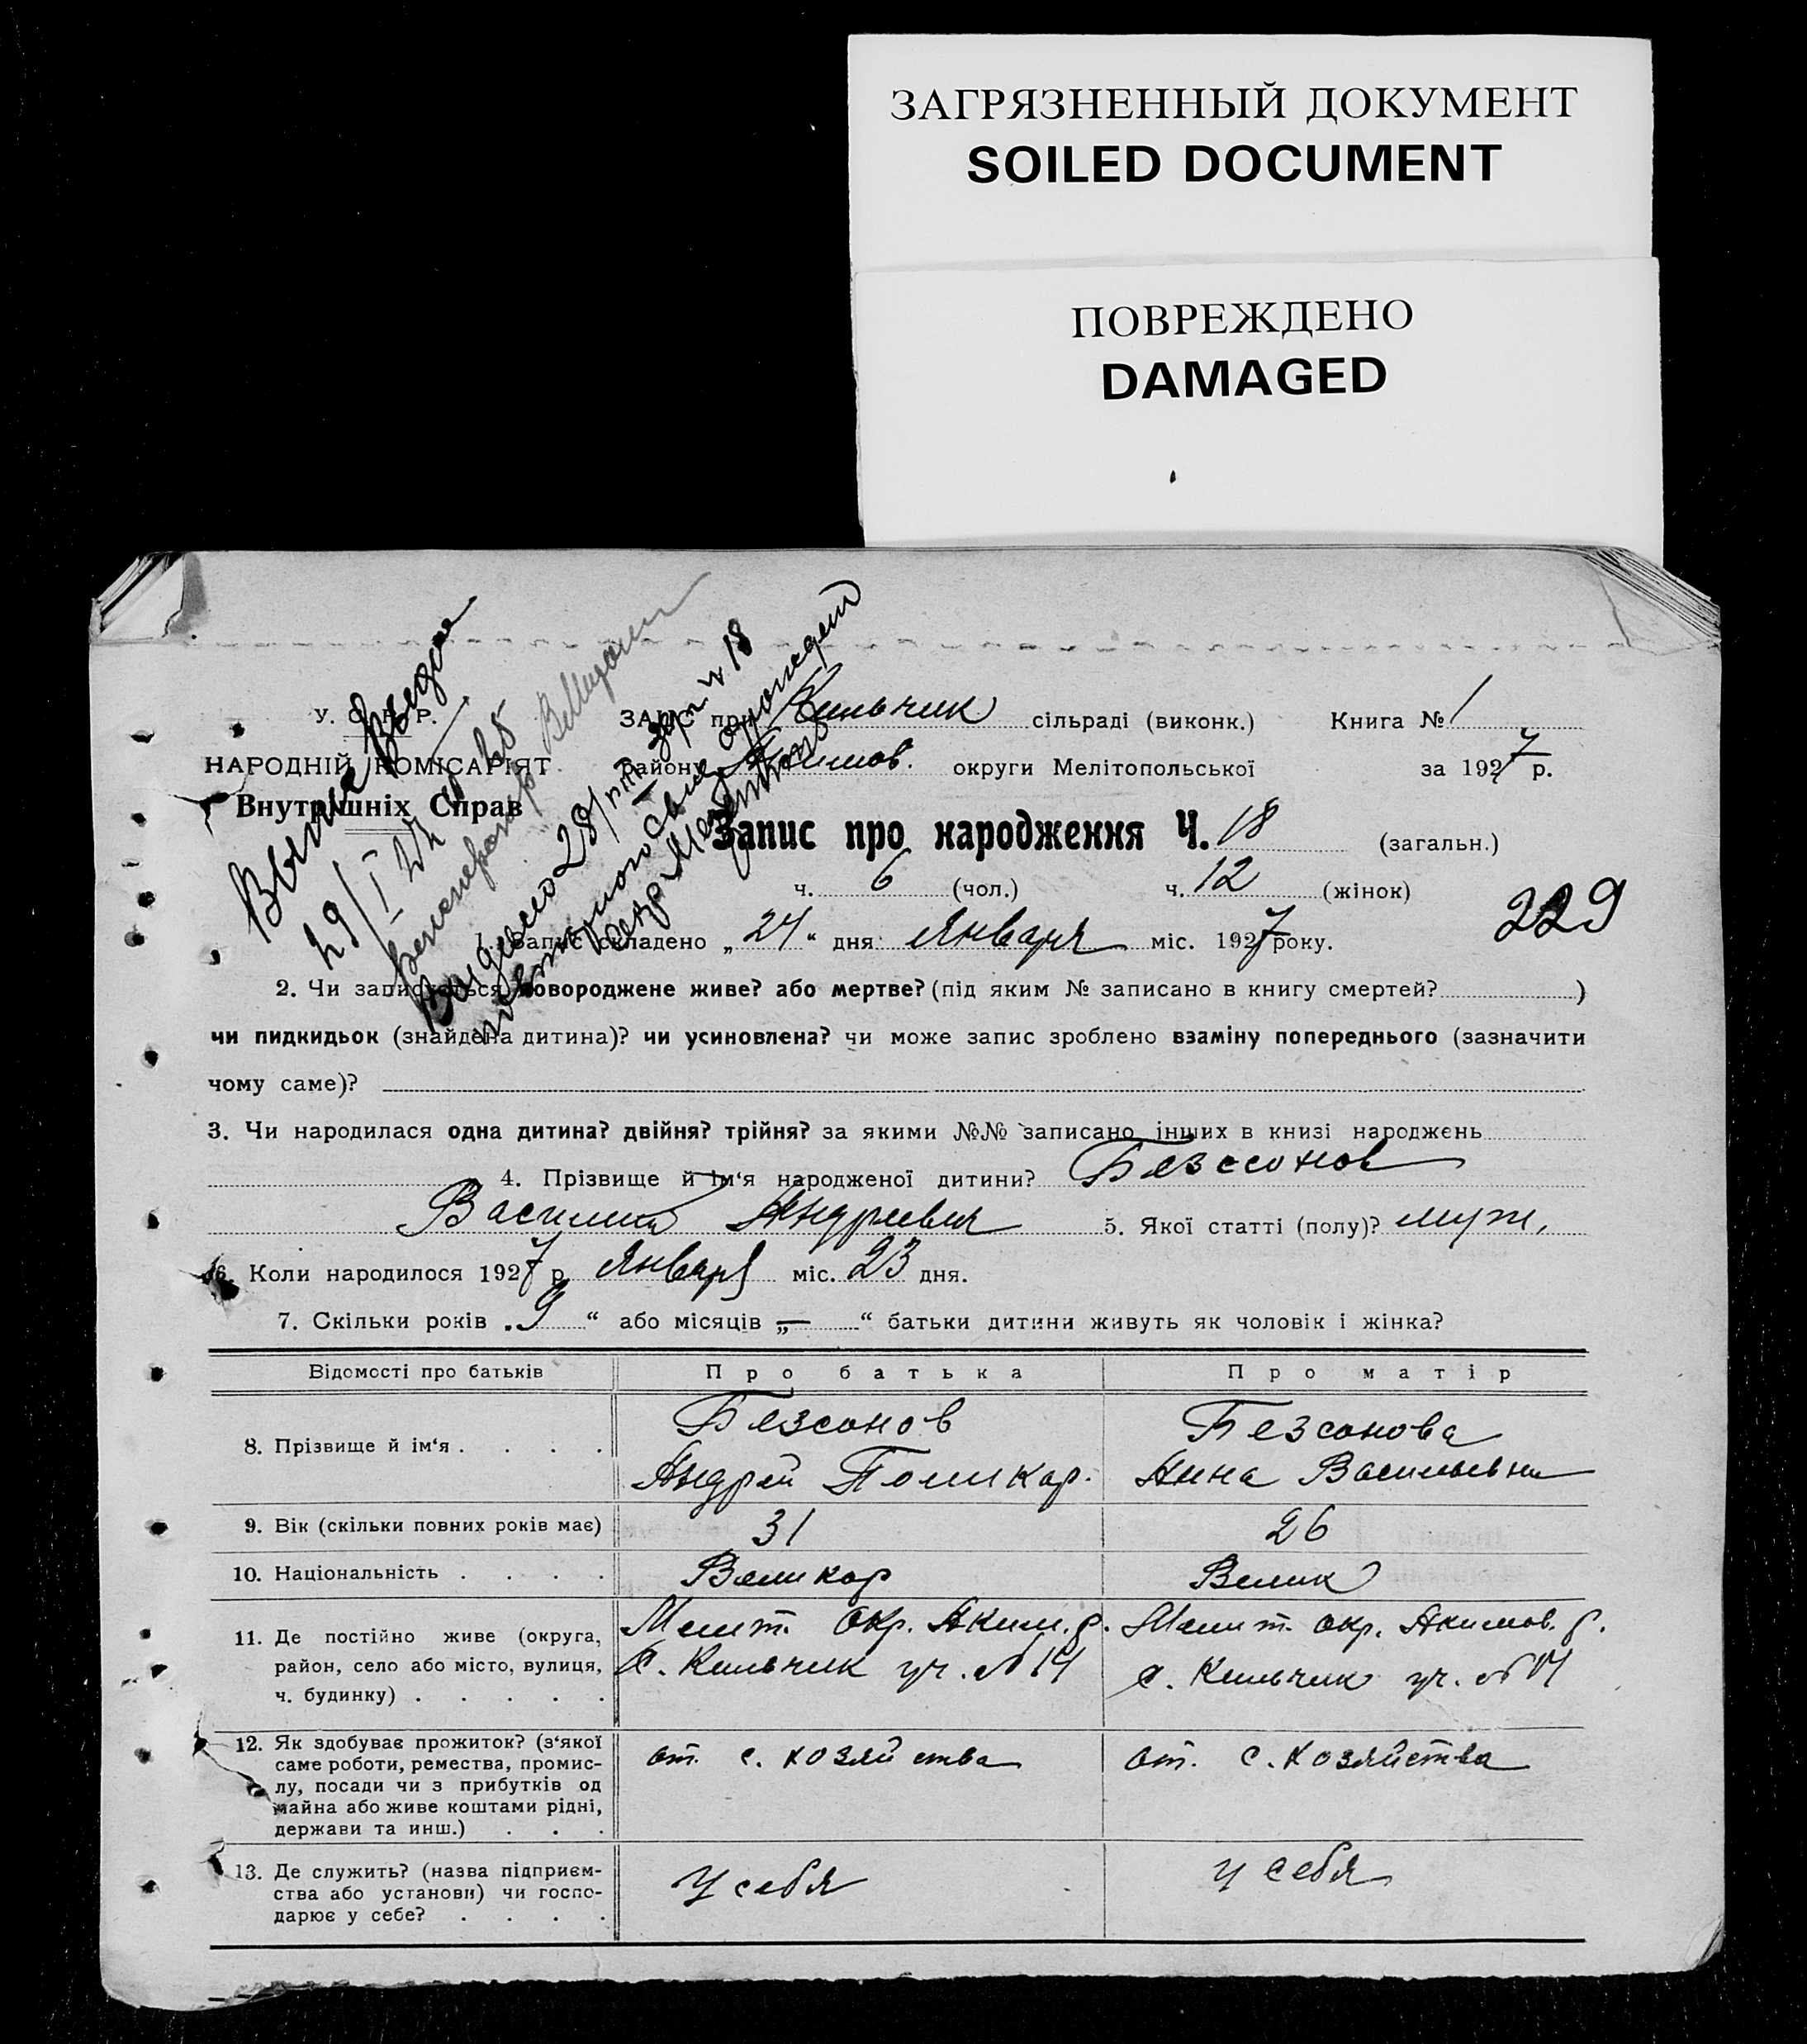 ЗАГРЯЗНЕННЫЙ ДОКУМЕНТ
SOILED DOCUMENT
ПОВРЕЖДЕНО
DAMAGED
У. С. Р. Р.
НАРОДНІЙ КОМІСАРІЯТ
Внутрішніх Справ
ЗАГС при Кильчик сільраді (виконк.) Книга № 1
району Акимов. округи Мелітопольської за 1927 р.
Запис про народження Ч. 18 (загальн.)
ч. 6 (чол.) ч. 12 (жінок)
229
1. Запис складено „24“ дня Января міс. 1927 року.
2. Чи записується новороджене живе? або мертве? (під яким № записано в книгу смертей? )
чи пидкидьок (знайдена дитина)? чи усиновлена? чи може запис зроблено взаміну попереднього (зазначити
чому саме)?
3. Чи народилася одна дитина? двійня? трійня? за якими №№ записано інших в книзі народжень
4. Прізвище й ім‘я народженої дитини? Безсонов
Василий Андреевич 5. Якої статті (полу)? муж.
6. Коли народилося 1927 р. Января міс. 23 дня.
7. Скільки років „9“ або місяців „—“ батьки дитини живуть як чоловік і жінка?
Відомості про батьків Про батька Про матір
8. Прізвище й ім‘я . . . .
Безсонов
Андрей Поликар.
Безсонова
Анна Васильевна
9. Вік (скільки повних років має) 31 26
10. Національність . . . . Великор Велик
11. Де постійно живе (округа,
район, село або місто, вулиця,
ч. будинку) . . . . .
Мелит. окр. Аким. р.
с. Кильчик уч. № 14
Мелит. окр. Акимов. р.
с. Кильчик уч. № 14
12. Як здобуває прожиток? (з‘якої
саме роботи, ремества, промис-
лу, посади чи з прибутків од
майна або живе коштами рідні,
держави та инш.) . . .
от. с. хозяйства
от. с. хозяйства
13. Де служить? (назва підприєм-
ства або установи) чи госпо-
дарює у себе? . . . .
у себя
у себя